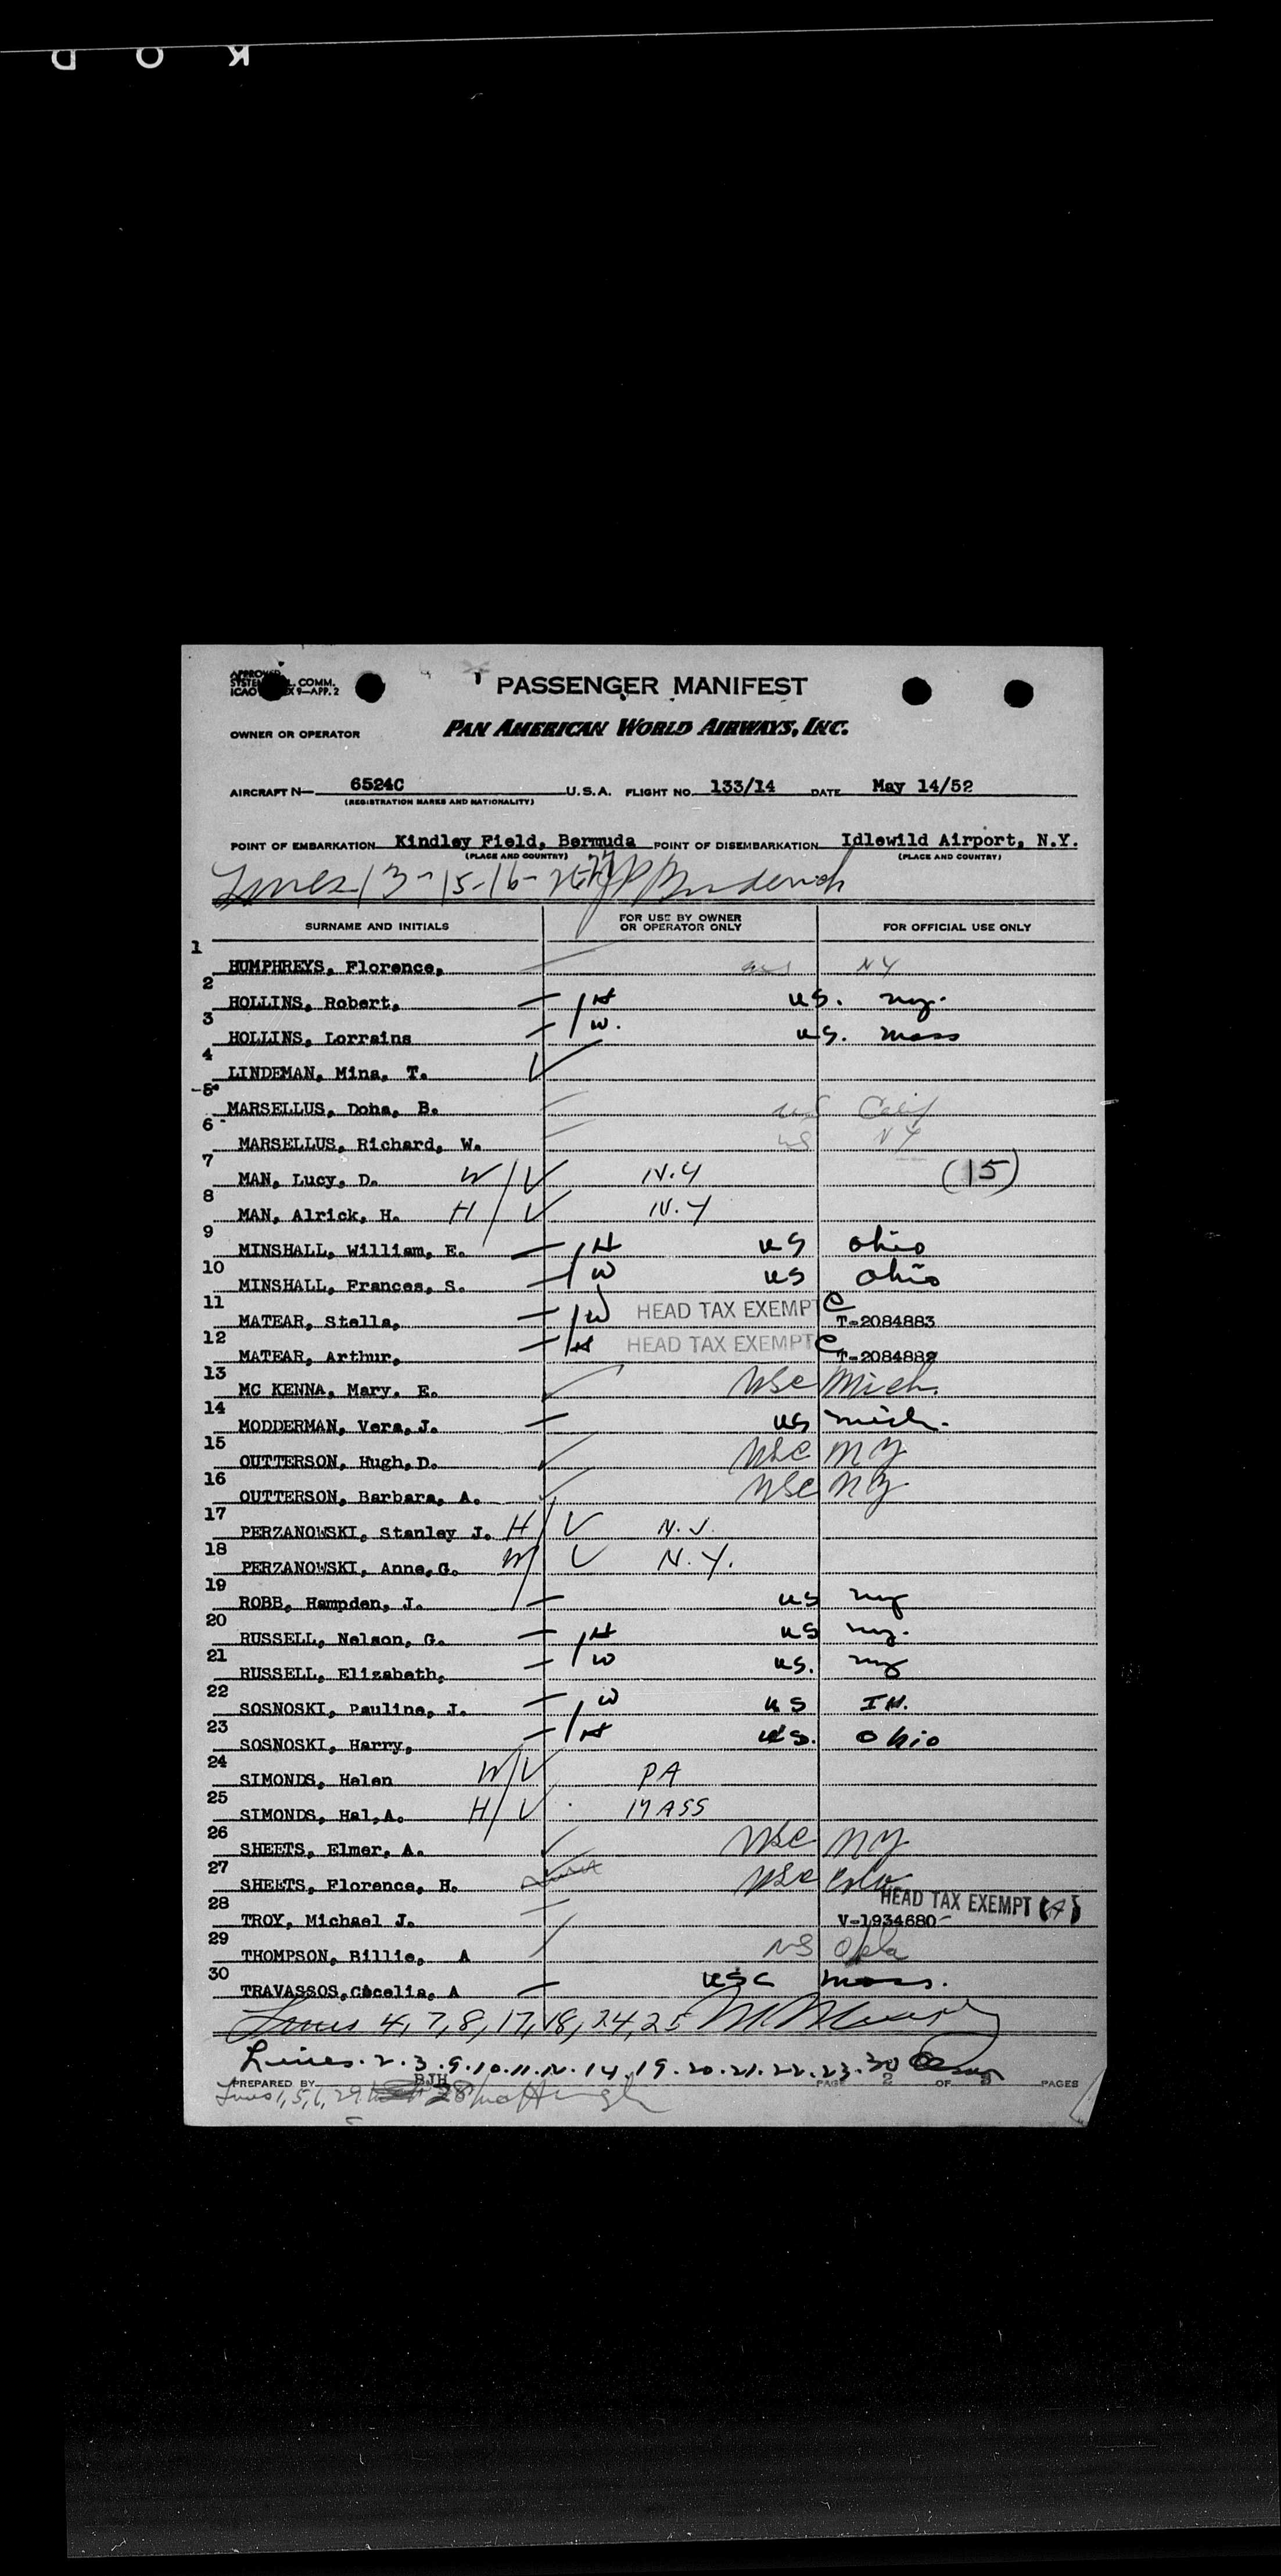 K O D
APPROVED
SYSTEM L. COMM.
ICAO X 9—APP. 2
PASSENGER MANIFEST
OWNER OR OPERATOR PAN AMERICAN WORLD AIRWAYS, INC.
AIRCRAFT N— 6524C U.S.A. FLIGHT NO. 133/14 DATE May 14/52
(REGISTRATION MARKS AND NATIONALITY)
POINT OF EMBARKATION Kindley Field, Bermuda POINT OF DISEMBARKATION Idlewild Airport, N.Y.
(PLACE AND COUNTRY) (PLACE AND COUNTRY)
Lines 13-15-16-26-27
SURNAME AND INITIALS FOR USE BY OWNER OR OPERATOR ONLY FOR OFFICIAL USE ONLY
1 HUMPHREYS, Florence, NY
2 HOLLINS, Robert, H US. NY.
3 HOLLINS, Lorraine W. US. Mass
4 LINDEMAN, Mina, T.
5 MARSELLUS, Doha, B. US Calif
6 MARSELLUS, Richard, W. US NY
7 MAN, Lucy, D. W N.Y (15)
8 MAN, Alrick, H. H N.Y
9 MINSHALL, William, E. H US Ohio
10 MINSHALL, Frances, S. W US Ohio
11 MATEAR, Stella, W HEAD TAX EXEMPT C T-2084883
12 MATEAR, Arthur, H HEAD TAX EXEMPT C T-2084882
13 MC KENNA, Mary, E. USC Mich.
14 MODDERMAN, Vera, J. US Mich.
15 OUTTERSON, Hugh, D. USC NY
16 OUTTERSON, Barbara, A. USC NY
17 PERZANOWSKI, Stanley J. H N.J.
18 PERZANOWSKI, Anne, G. W N.Y.
19 ROBB, Hampden, J. US NY
20 RUSSELL, Nelson, G. H US NY.
21 RUSSELL, Elizabeth, W US. NY
22 SOSNOSKI, Pauline, J. W US Ill.
23 SOSNOSKI, Harry, H US. Ohio
24 SIMONDS, Helen W PA
25 SIMONDS, Hal, A. H MASS
26 SHEETS, Elmer, A. USC NY
27 SHEETS, Florence, H. USC Colo
28 TROY, Michael J. V-1934680 HEAD TAX EXEMPT (A)
29 THOMPSON, Billie, A US Okla
30 TRAVASSOS, Cecelia, A USC Mass.
Lines 4, 7, 8, 17, 18, 24, 25
Lines. 2. 3. 9. 10. 11. 12. 14. 19. 20. 21. 22. 23. 30
PREPARED BY BJH PAGE 2 OF 3 PAGES
Lines 1, 5, 6, 29 28